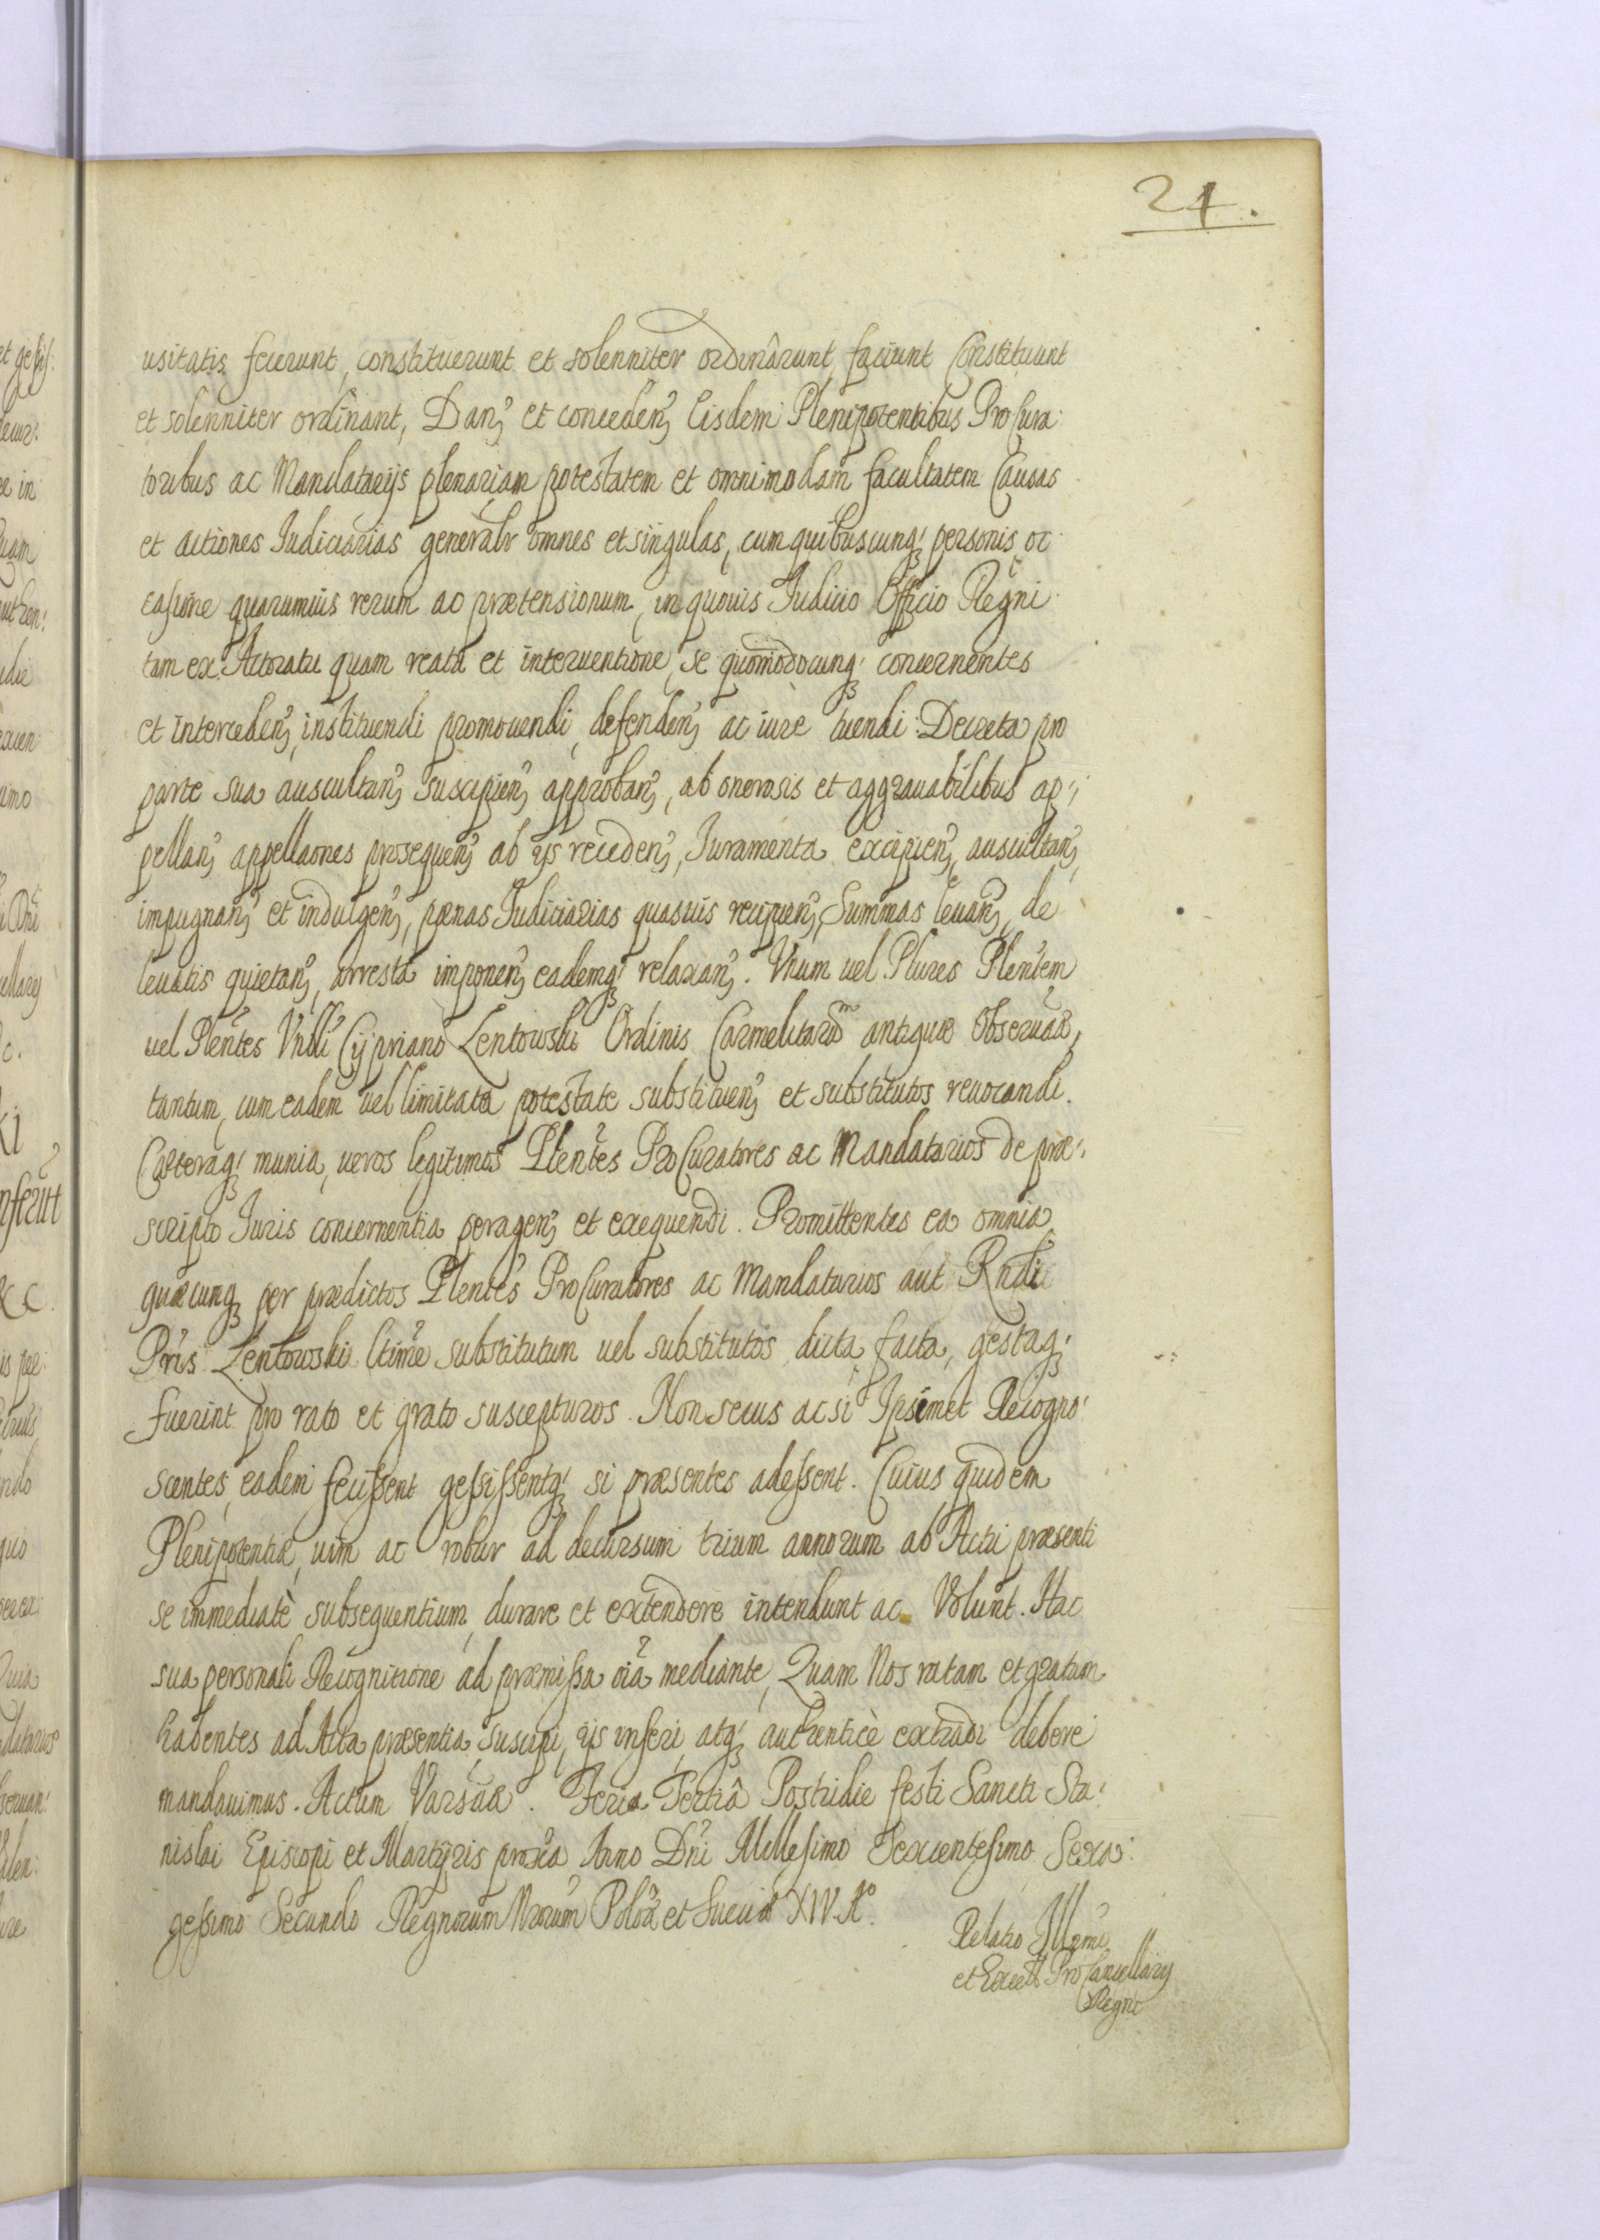 24.
usitatis fecerunt, constituerunt et solenniter ordinârunt, faciunt Constituunt
et solenniter ordinant, Danꝫ et concedenꝫ Eisdem Plenipotentibus ProCura:
toribus ac Mandatarijs plenariam potestatem et omnimodam facultatem Causas
et actiones Judiciarias generalr omnes et singulas, cum quibuscunqꝫ personis oc
casione quarumuis rerum ac prætensionum, in quouis Judicio Officio Regni
tam ex Actoratu quam reatu et interuentione, se quomodocunqꝫ concernentes
et intercedenꝫ, instituendi promouendi, defendenꝫ ac iure tuendi: Decreta pro
parte sua auscultanꝫ suscipienꝫ approbanꝫ, ab onerosis et aggrauabilibus ap:
pellanꝫ appellaones prosequenꝫ ab ijs recedenꝫ, Juramenta excipienꝫ, auscultanꝫ,
impugnanꝫ et indulgenꝫ, pœnas Judiciarias quasuis recipienꝫ, Summas leuanꝫ, de
leuatis quietanꝫ, arresta imponenꝫ eademqꝫ relaxanꝫ. Vnum uel Plures Plentem
uel Plentes Vndi Cijpriano Lentowski Ordinis Carmelitarum antiquæ Obseruaæ,
tantum, cum eadem uel limitata potestate substituenꝫ et substitutos reuocandi.
Cæteraqꝫ munia, ueros legitimos Plentes ProCuratores ac Mandatarios de præ:
scripto Juris concernentia peragenꝫ et exequendi. Promittentes ea omnia
quæcunqꝫ per prædictos Plentes ProCuratores ac Mandatarios aut Rndi
Pris Lentowski ltime substitutum uel substitutos, dicta, facta, gestaqꝫ
fuerint pro rato et grato suscepturos. Non secus acsi Ipsimet Recogno:
scentes, eadem fecissent gessissentqꝫ si præsentes adessent. Cuius quidem
Plenipotentiæ, uim ac robur ad decursum trium annorum ab Actu præsenti
se immediatè subsequentium, durare et extendere intendunt ac Volunt. Hac
sua personali Recognitione ad præmissa oia mediante, Quam Nos ratam et gratam
habentes ad Acta præsentia suscipi, ijs inseri, atqꝫ authenticè extradi debere
mandauimus. Actum Varsaa. Feria Tertiâ Postridie festi Sancti Sta:
nislai Episcopi et Martijris proxa Anno Dni Millesimo Sexcentesimo Sexa:
gessimo Secundo Regnorum Nrorum Polöæ et Sueciæ XIV. Ao.
Relatio Illrmi
et Excell ProCancellarij
Regni